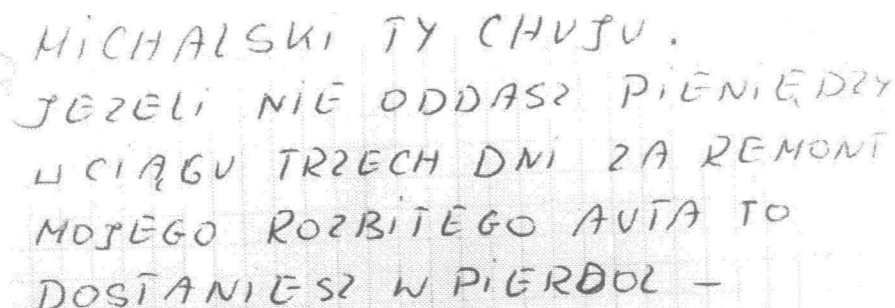 MICHALSKI TY CHUJU.
JEZELI NIE ODDASZ PIENIĘDZY
W CIĄGU TRZECH DNI ZA REMONT
MOJEGO ROZBITEGO AUTA TO
DOSTANIESZ W PIERDOL –